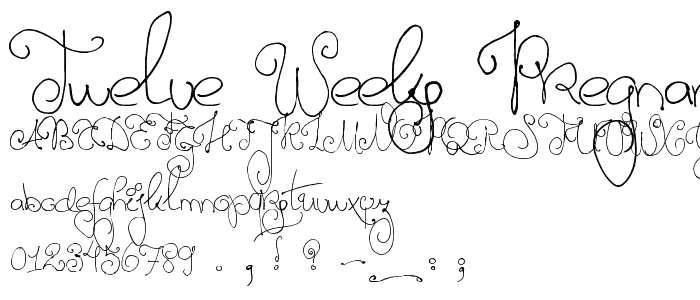 Twelve Weeks Pregnan
ABCDEFGHIJKLMNOPQRSTUVWXY
abcdefghijklmnopqrstuvwxyz
0123456789 . , ! ? - _ : ;